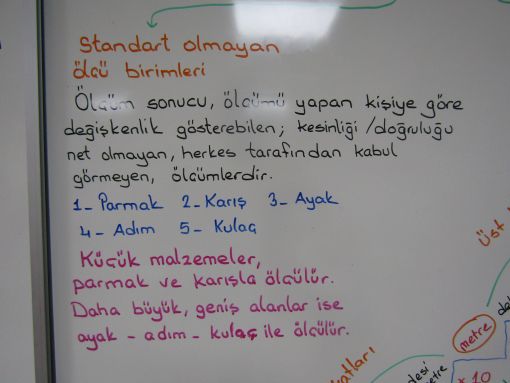 Standart olmayan
ölçü birimleri
Ölçüm sonucu, ölçümü yapan kişiye göre
değişkenlik gösterebilen; kesinliği/doğruluğu
net olmayan, herkes tarafından kabul
görmeyen, ölçümlerdir.
1- Parmak 2- Karış 3- Ayak
4- Adım 5- Kulaç
Küçük malzemeler,
parmak ve karışla ölçülür.
Daha büyük, geniş alanlar ise
ayak - adım - kulaç ile ölçülür.
Üst
metre
x 10